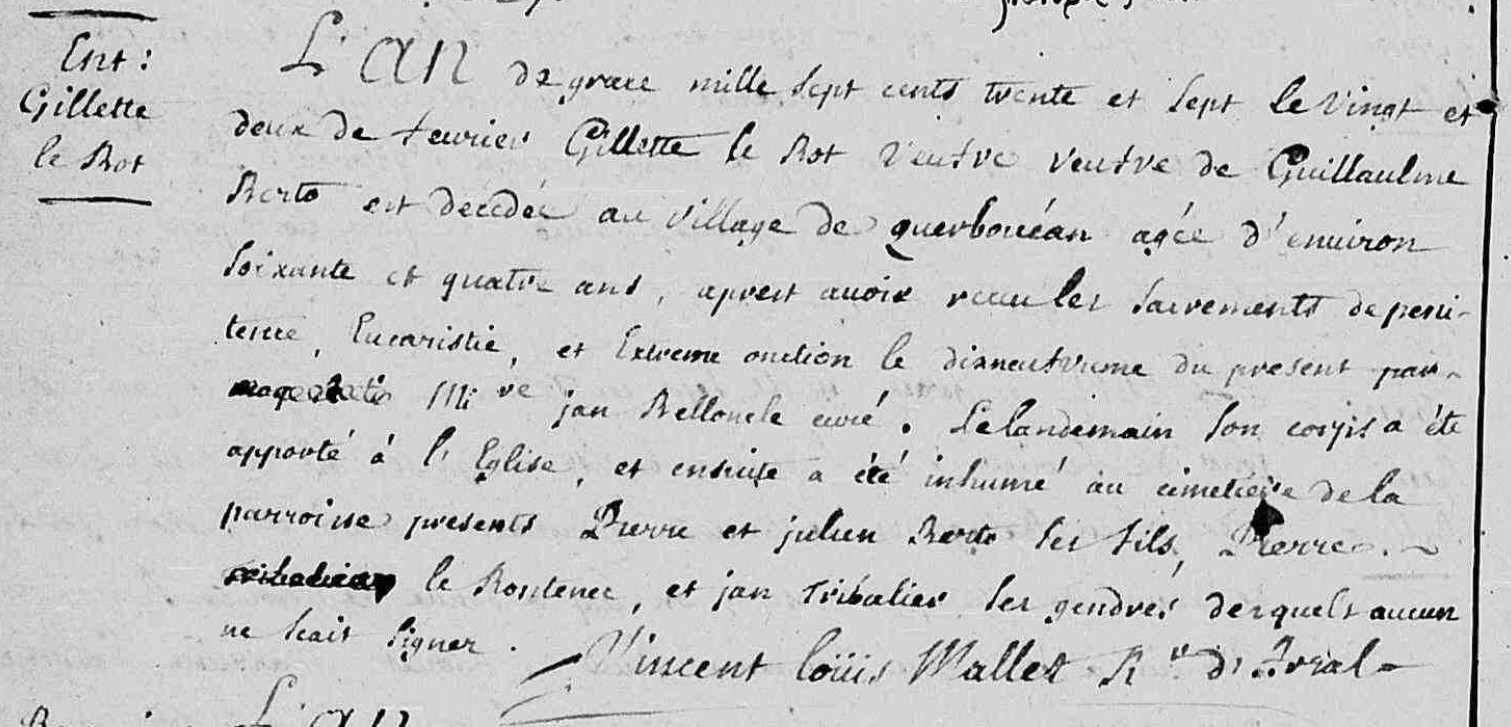 Ent:
Gillette
le Rot
L'AN de grace mille sept cents trente et sept le vingt et
deux de fevrier Gillette le Rot veufve veufve de Guillaulme
Berto est décédée au village de querbouéan agée d'environ
soixante et quatre ans, aprest avoir receu les sacrements de peni-
tence, Eucaristie, et Extreme onction le dixneufvieme du present par
Mire jan Bellonele curé. Le landemain son corps a été
apporté à l'Eglise, et ensuite a été inhumé au cimetiere de la
parroisse presents Pierre et julien Berto ses fils, Pierre
le Rontenec, et jan Tribalier ses gendres desquels aucun
ne scait signer.
Vincent Loüis Mallet Rr d'
L'AN